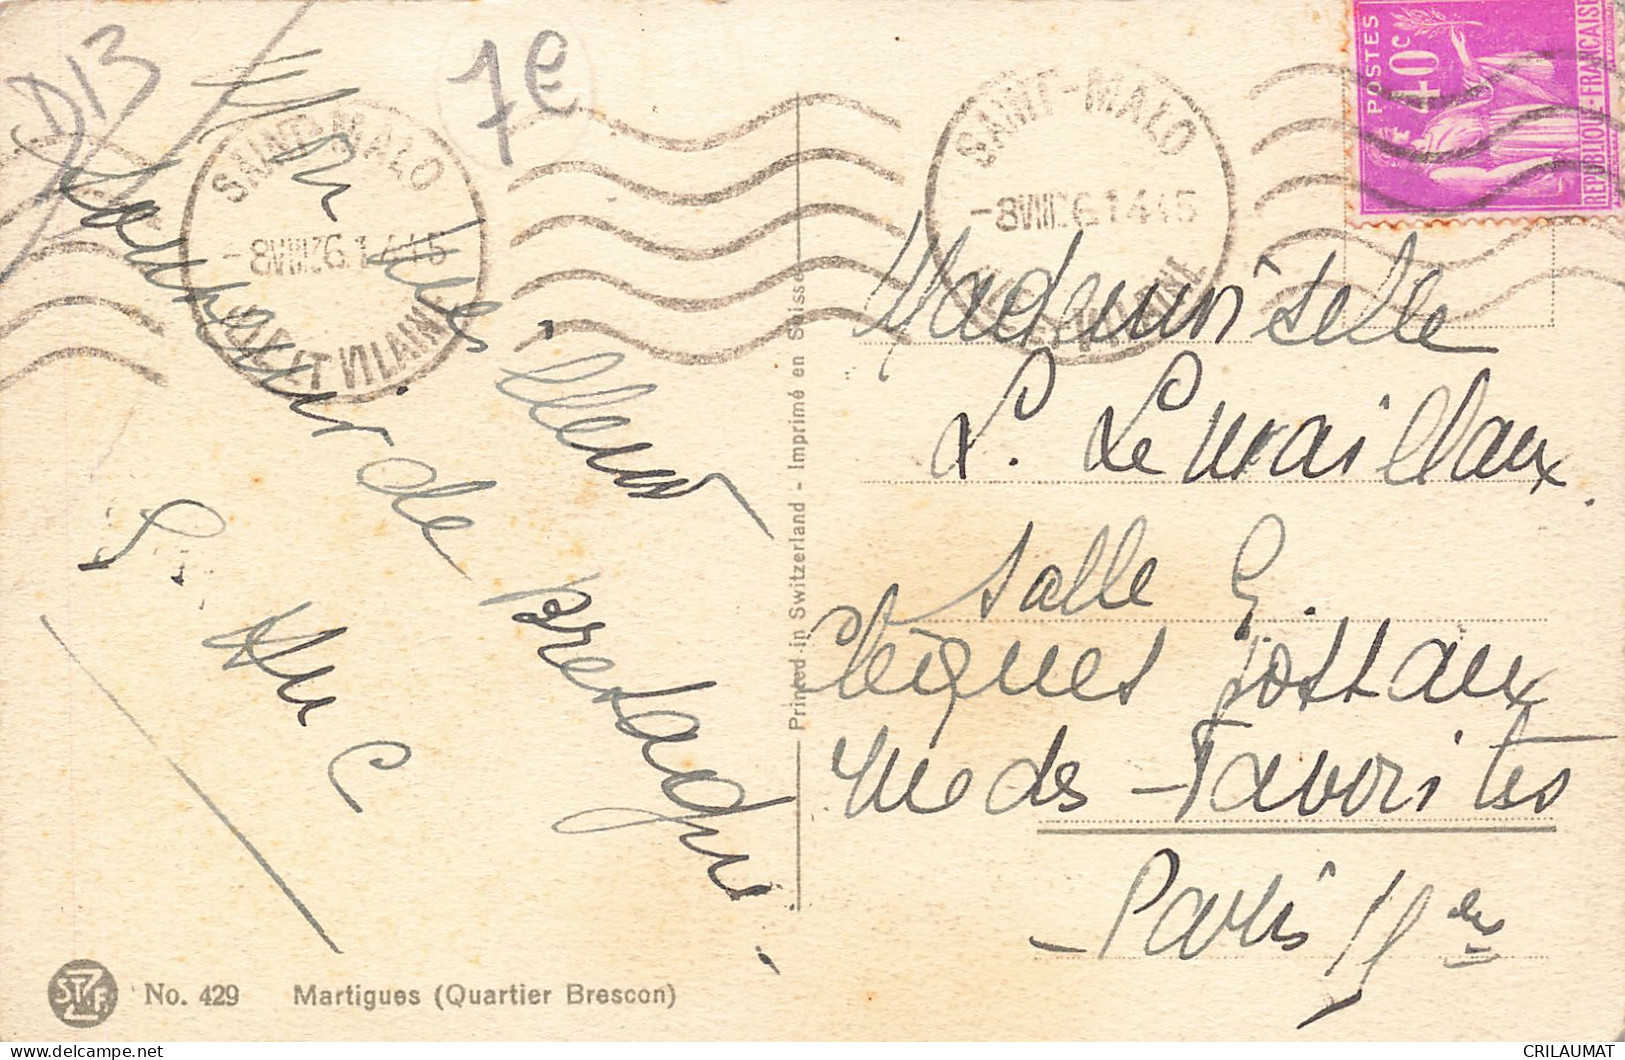 D13
7€
SAINT-MALO
-8 VIII 36 1415
ILLE ET VILAINE
SAINT-MALO
-8 VIII 36 1415
ILLE ET VILAINE
POSTES
40c
REPUBLIQUE-FRANÇAISE
Un
meilleur
Souvenir de Bretagne
Printed in Switzerland - Imprimé en Suisse
Mademoiselle
L. Lemaillaux
Salle G.
Chèques Postaux
rue des Favorites
Paris
No. 429 Martigues (Quartier Brescon)
CRILAUMAT